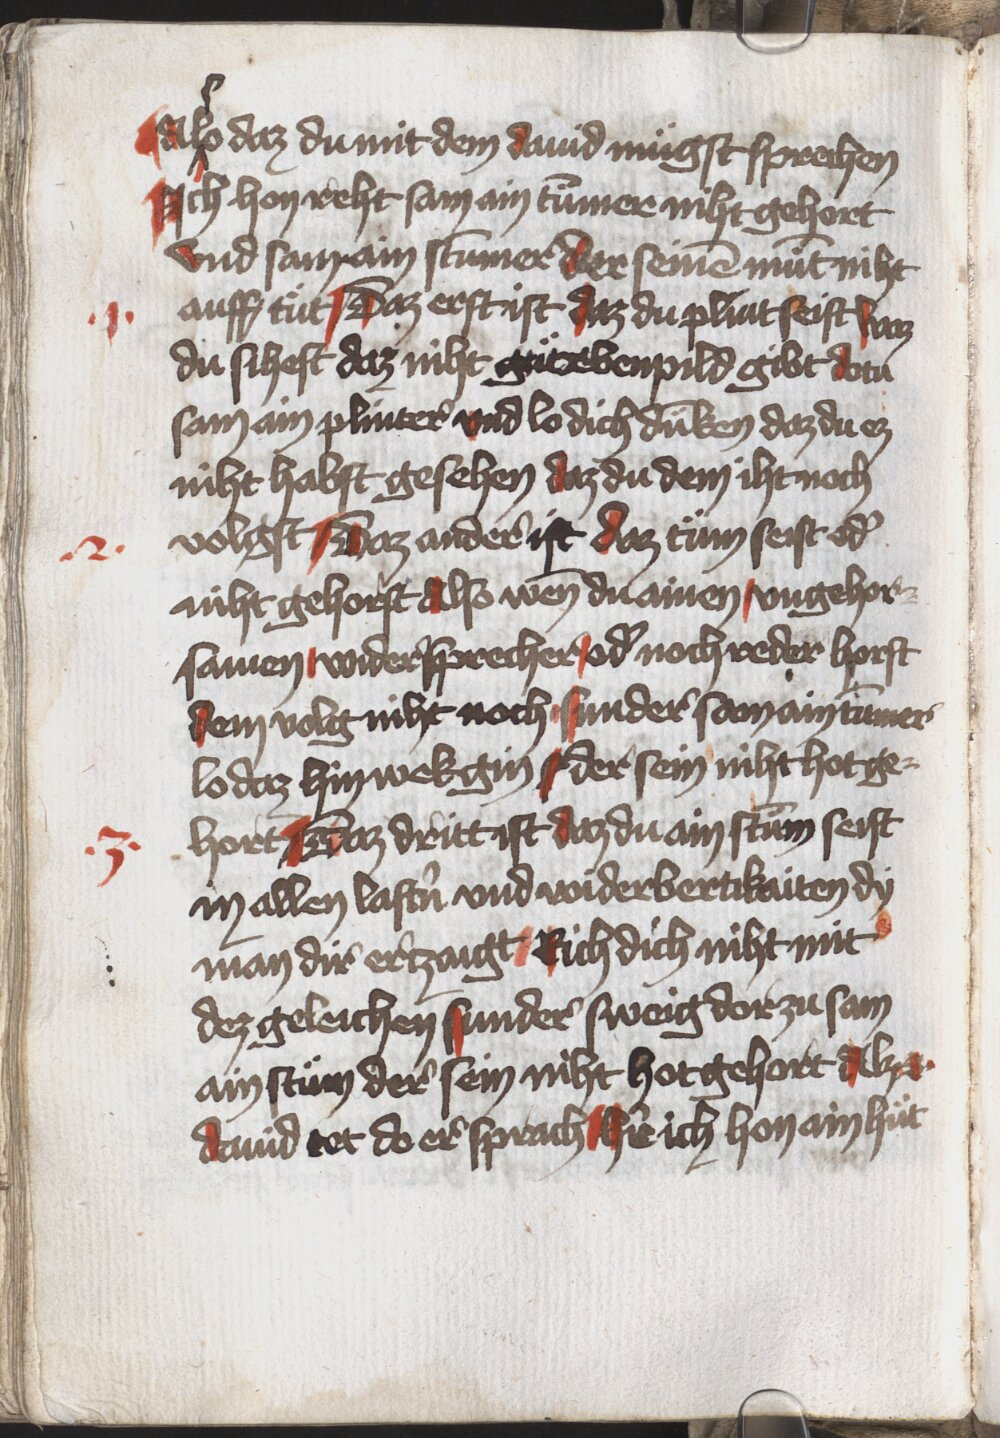 also daz du mit dem dauid mügst sprechen
Ich hon reht sam ain tūmer niht gehort
vnd sam ain stumer der seinē mūt niht
auff tüt Daz erst ist daz du plint seist waz
.1.
du sihest daz niht gütz ebenpild gibt do tu
sam ain plinter vnd lo dich dūken daz du ez
niht habst gesehen daz du dem iht noch
volgst Daz ander ist daz tüm seist od'
.2.
niht gehorst Also wen du ainen vngehor-
samen wider sprecher od' noch reder horst
dem volg niht noch sunder sam ain tūmer
lo daz hin wek gin der sein niht hot ge-
hort Daz dritt ist daz du ain stūm seist
.3.
in allen lastn' vnd widerbertikaiten dy
man dir ertzaigt Rich dich niht mit
dez geleichen sunder sweig dor zu sam
ain stüm der sein niht hot gehort alz
dauid tet do er sprach h're ich hon ain hüt